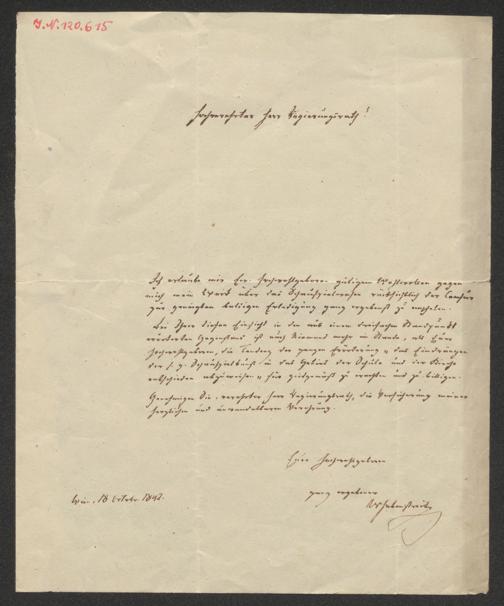 J.N. 120.615
Hochverehrter Herr Regierungsrath!
Ich erlaube mir Euer Hochwohlgeboren gütigem Wohlwollen gegen
mich mein Werk über das Schauspielwesen rücksichtlich der Censur
zur geneigten baldigen Erledigung ganz ergebenst zu empfehlen.
Bei Ihrer hohen Einsicht in den aus einem dreifachen Standpunkt
erörterten Gegenstand ist auch Niemand mehr im Stande, als Euer
Hochwohlgeboren, die Tendenz der ganzen Erörterung u. das Eindringen
der s. g. Schaubühne in das Gebiet der Schule und der Kirche
entschieden abzuweisen u. für zeitgemäß zu erachten und zu billigen.
Genehmigen Sie, verehrter Herr Regierungsrath, die Versicherung meiner
herzlichen und unwandelbaren Verehrung.
Euer Hochwohlgeboren
ganz ergebener
Wien, 18 October 1842.